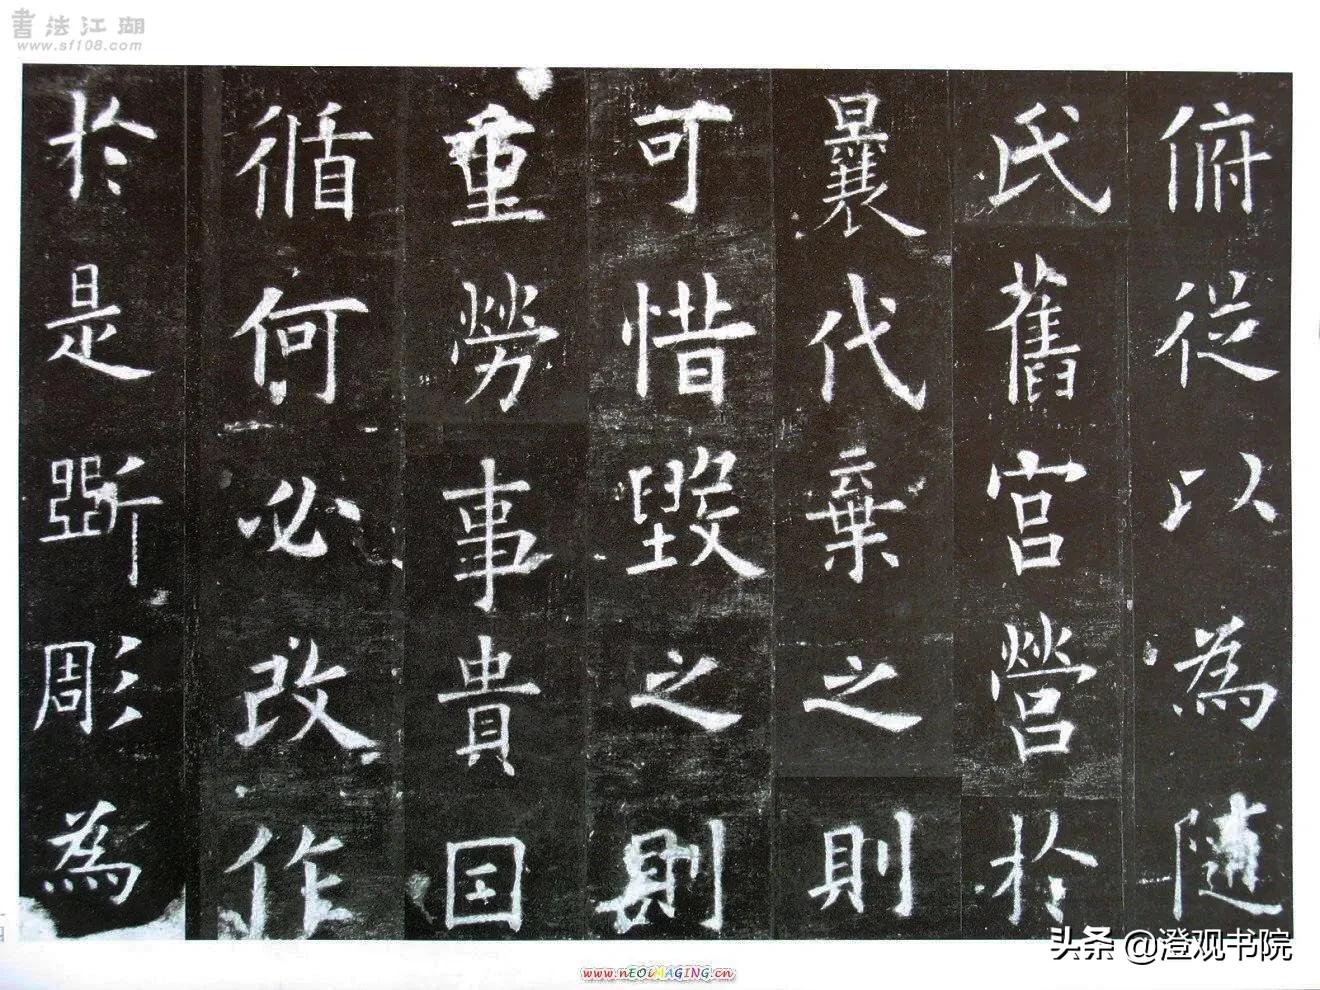 書法江湖
www.sf108.com
俯從以為隨
氏舊宮營於
曩代棄之則
可惜毀之則
重勞事貴因
循何必改作
於是斲彫為
头条 @澄观书院
www.nEOiMAGING.cn